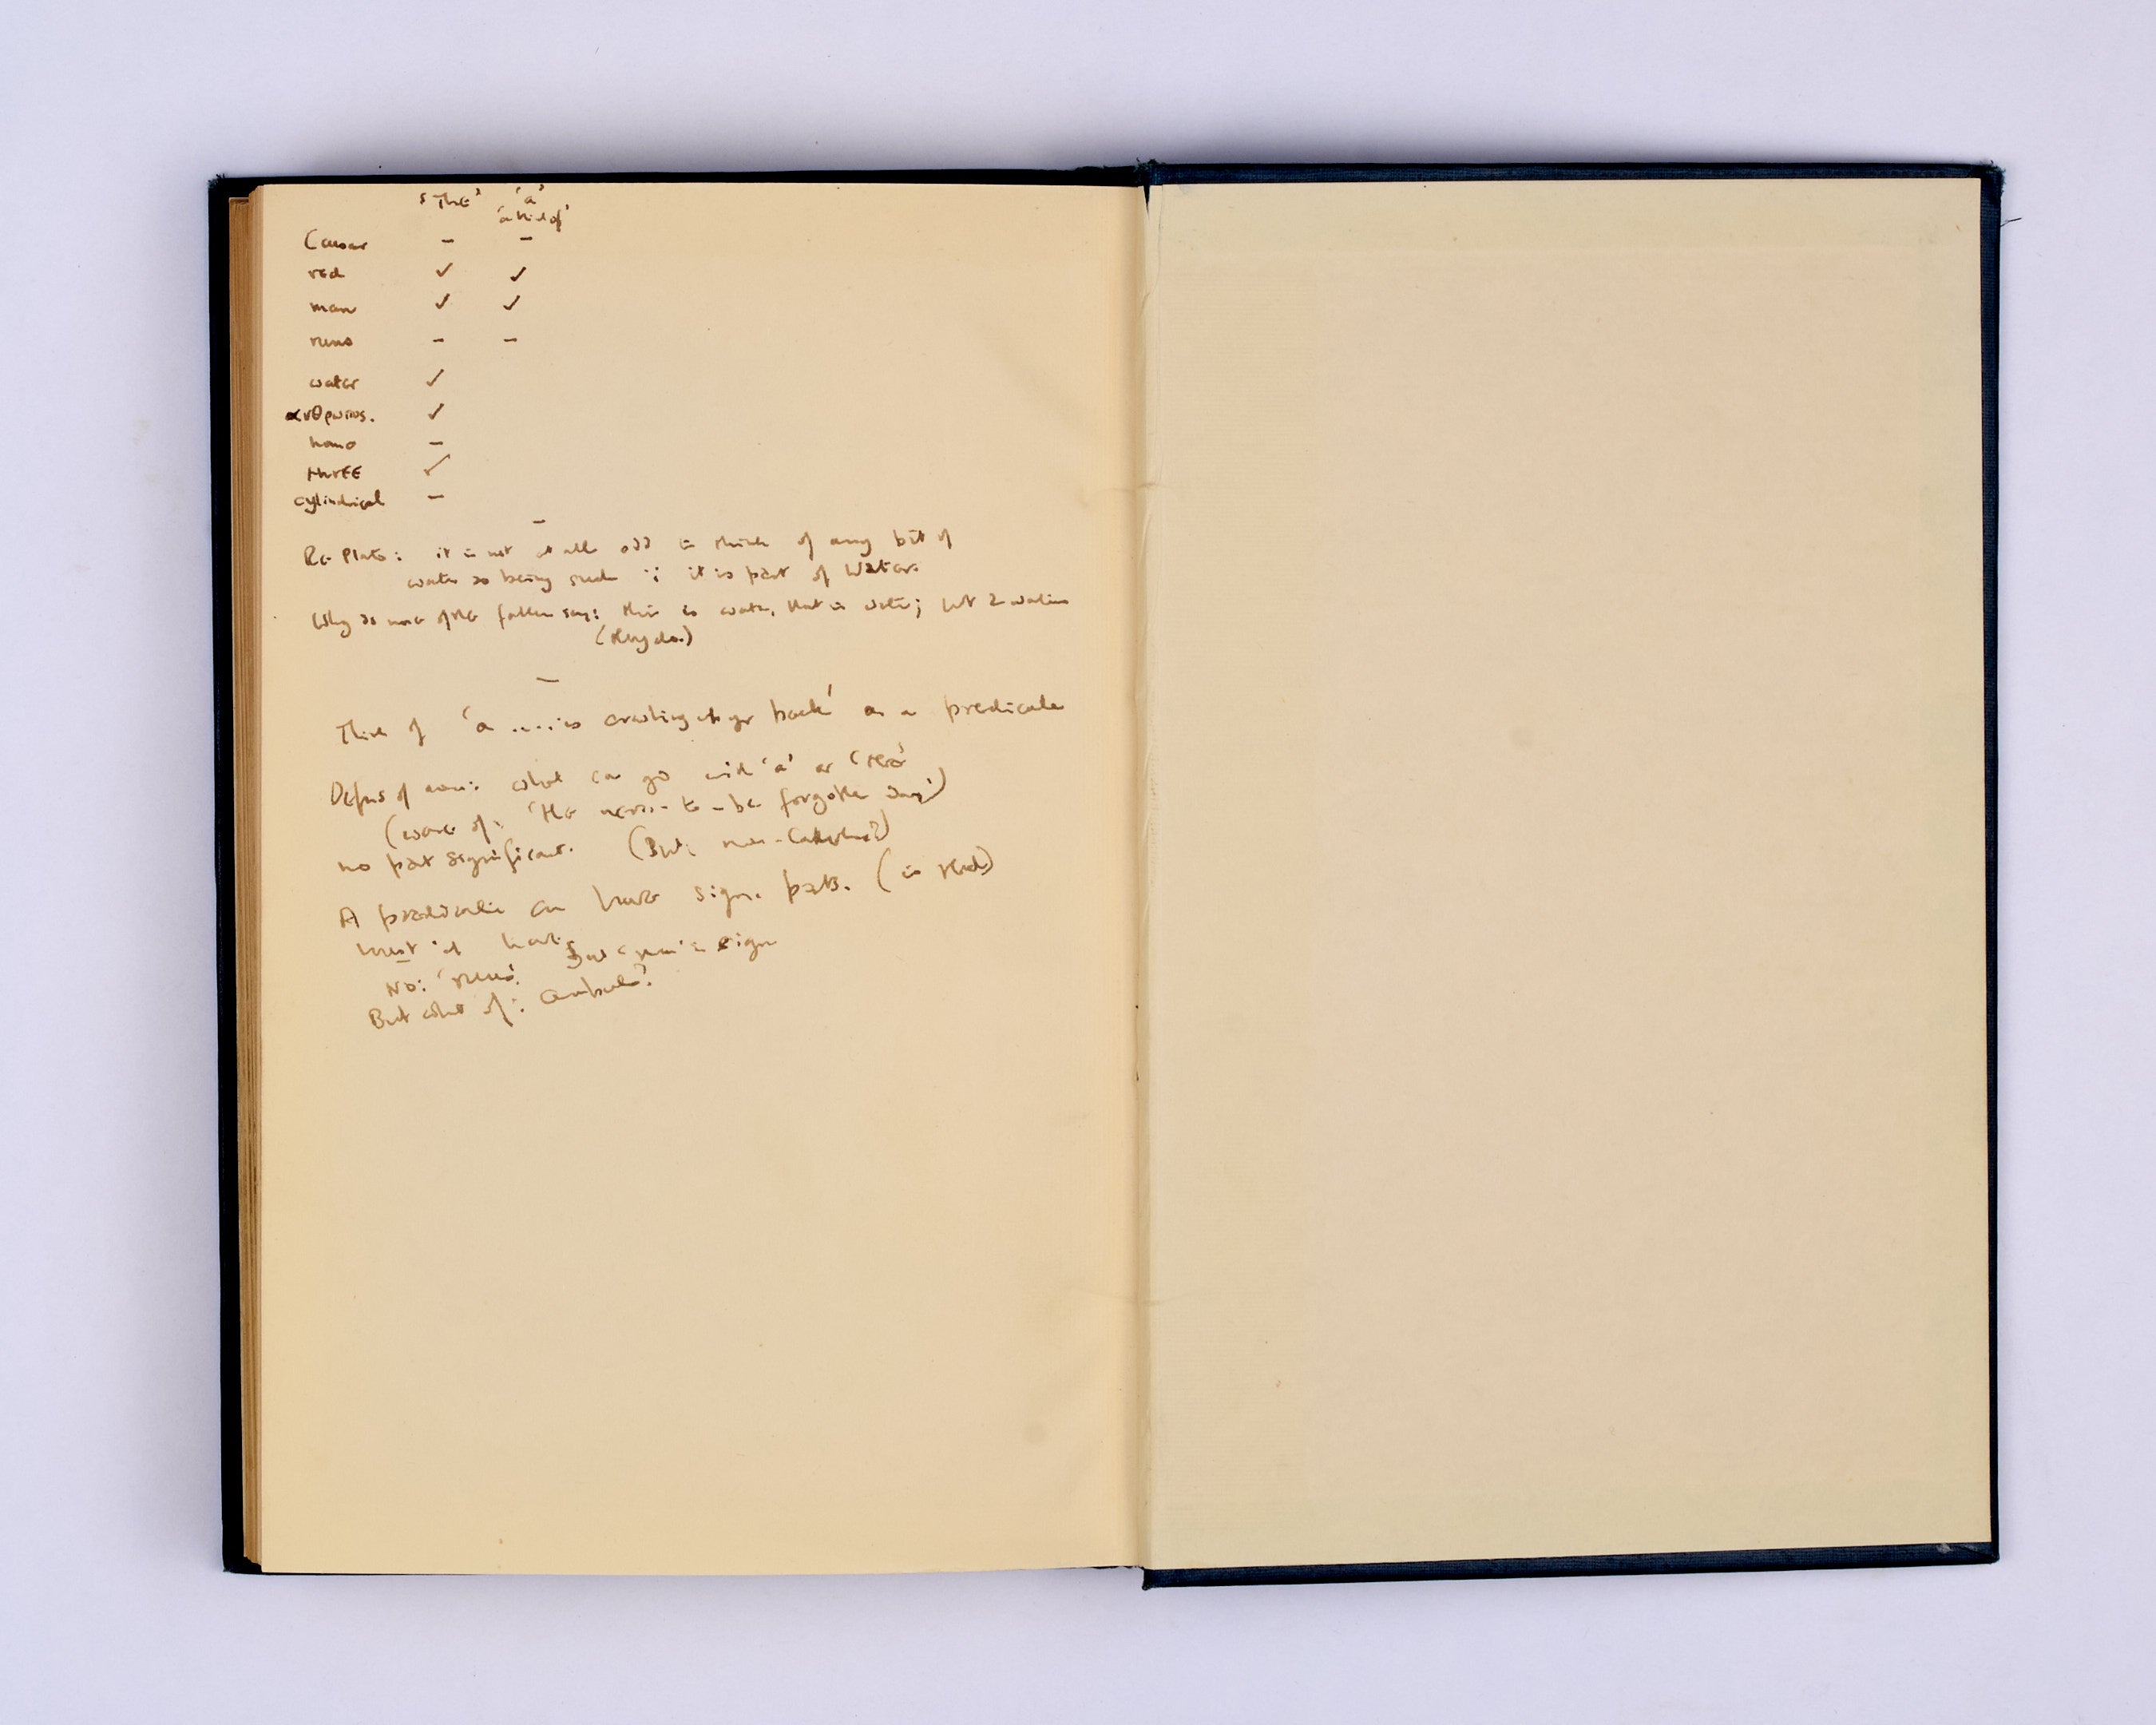 'The' 'a'
'a kind of'
Caesar – –
red ✓ ✓
man ✓ ✓
runs – –
water ✓
ανθρωπος. ✓
homo –
three ✓
cylindrical –
–
Re Plato: it is not at all odd to think of any bit of
water as being such ∵ it is part of Water.
Why do none of the say: this is water, that is water; but 2 waters
(they do.)
–
Think of 'a ....is crawling up yr back' as a predicate
Defns of noun: what can go with 'a' or 'the'
(what of: 'the never-to-be forgotten day')
no part significant. (But: non-Catholic?)
A predicate can have sign. parts. (is red)
Must it have
No: 'runs'. But 'runs' is sign
But what of: ambulo?